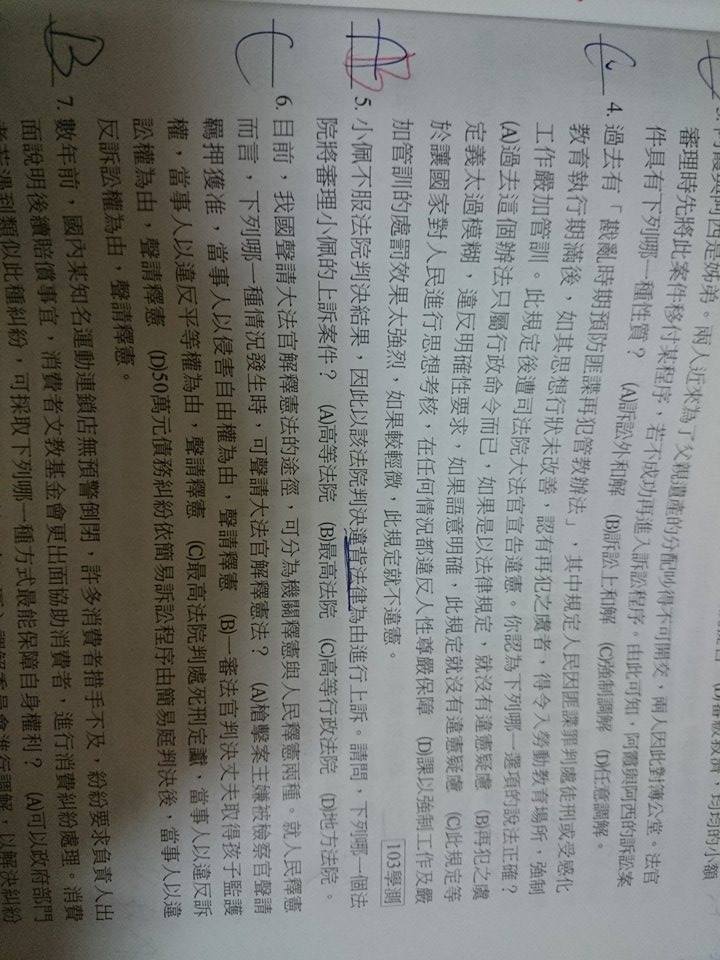 阿霞與阿西是姊弟。兩人近來為了父親遺產的分配吵得不可開交,兩人因此對簿公堂。法官
審理時先將此案件移付某程序,若不成功再進入訴訟程序。由此可知,阿霞與阿西的訴訟案
件具有下列哪一種性質? (A)訴訟外和解 (B)訴訟上和解 (C)強制調解 (D)任意調解。
C 4. 過去有「戡亂時期預防匪諜再犯管教辦法」,其中規定人民因匪諜罪判處徒刑或受感化
教育執行期滿後,如其思想行狀未改善,認有再犯之虞者,得令入勞動教育場所,強制
工作嚴加管訓。此規定後遭司法院大法官宣告違憲。你認為下列哪一選項的說法正確?
(A)過去這個辦法只屬行政命令而已,如果是以法律規定,就沒有違憲疑慮 (B)再犯之虞
定義太過模糊,違反明確性要求,如果語意明確,此規定就沒有違憲疑慮 (C)此規定等
於讓國家對人民進行思想考核,在任何情況都違反人性尊嚴保障 (D)課以強制工作及嚴
加管訓的處罰效果太強烈,如果較輕微,此規定就不違憲。 103學測
A B 5. 小佩不服法院判決結果,因此以該法院判決違背法律為由進行上訴。請問,下列哪一個法
院將審理小佩的上訴案件? (A)高等法院 (B)最高法院 (C)高等行政法院 (D)地方法院。
C 6. 目前,我國聲請大法官解釋憲法的途徑,可分為機關釋憲與人民釋憲兩種。就人民釋憲
而言,下列哪一種情況發生時,可聲請大法官解釋憲法? (A)槍擊案主嫌被檢察官聲請
羈押獲准,當事人以侵害自由權為由,聲請釋憲 (B)一審法官判決丈夫取得孩子監護
權,當事人以違反平等權為由,聲請釋憲 (C)最高法院判處死刑定讞,當事人以違反訴
訟權為由,聲請釋憲 (D)50萬元債務糾紛依簡易訴訟程序由簡易庭判決後,當事人以違
反訴訟權為由,聲請釋憲。
B 7. 數年前,國內某知名運動連鎖店無預警倒閉,許多消費者措手不及,紛紛要求負責人出
面說明後續賠償事宜,消費者文教基金會更出面協助消費者,進行消費糾紛處理。消費
者若遇到類似此種糾紛,可採取下列哪一種方式最能保障自身權利? (A)可以政府部門
調解委員會進行調解,以解決糾紛